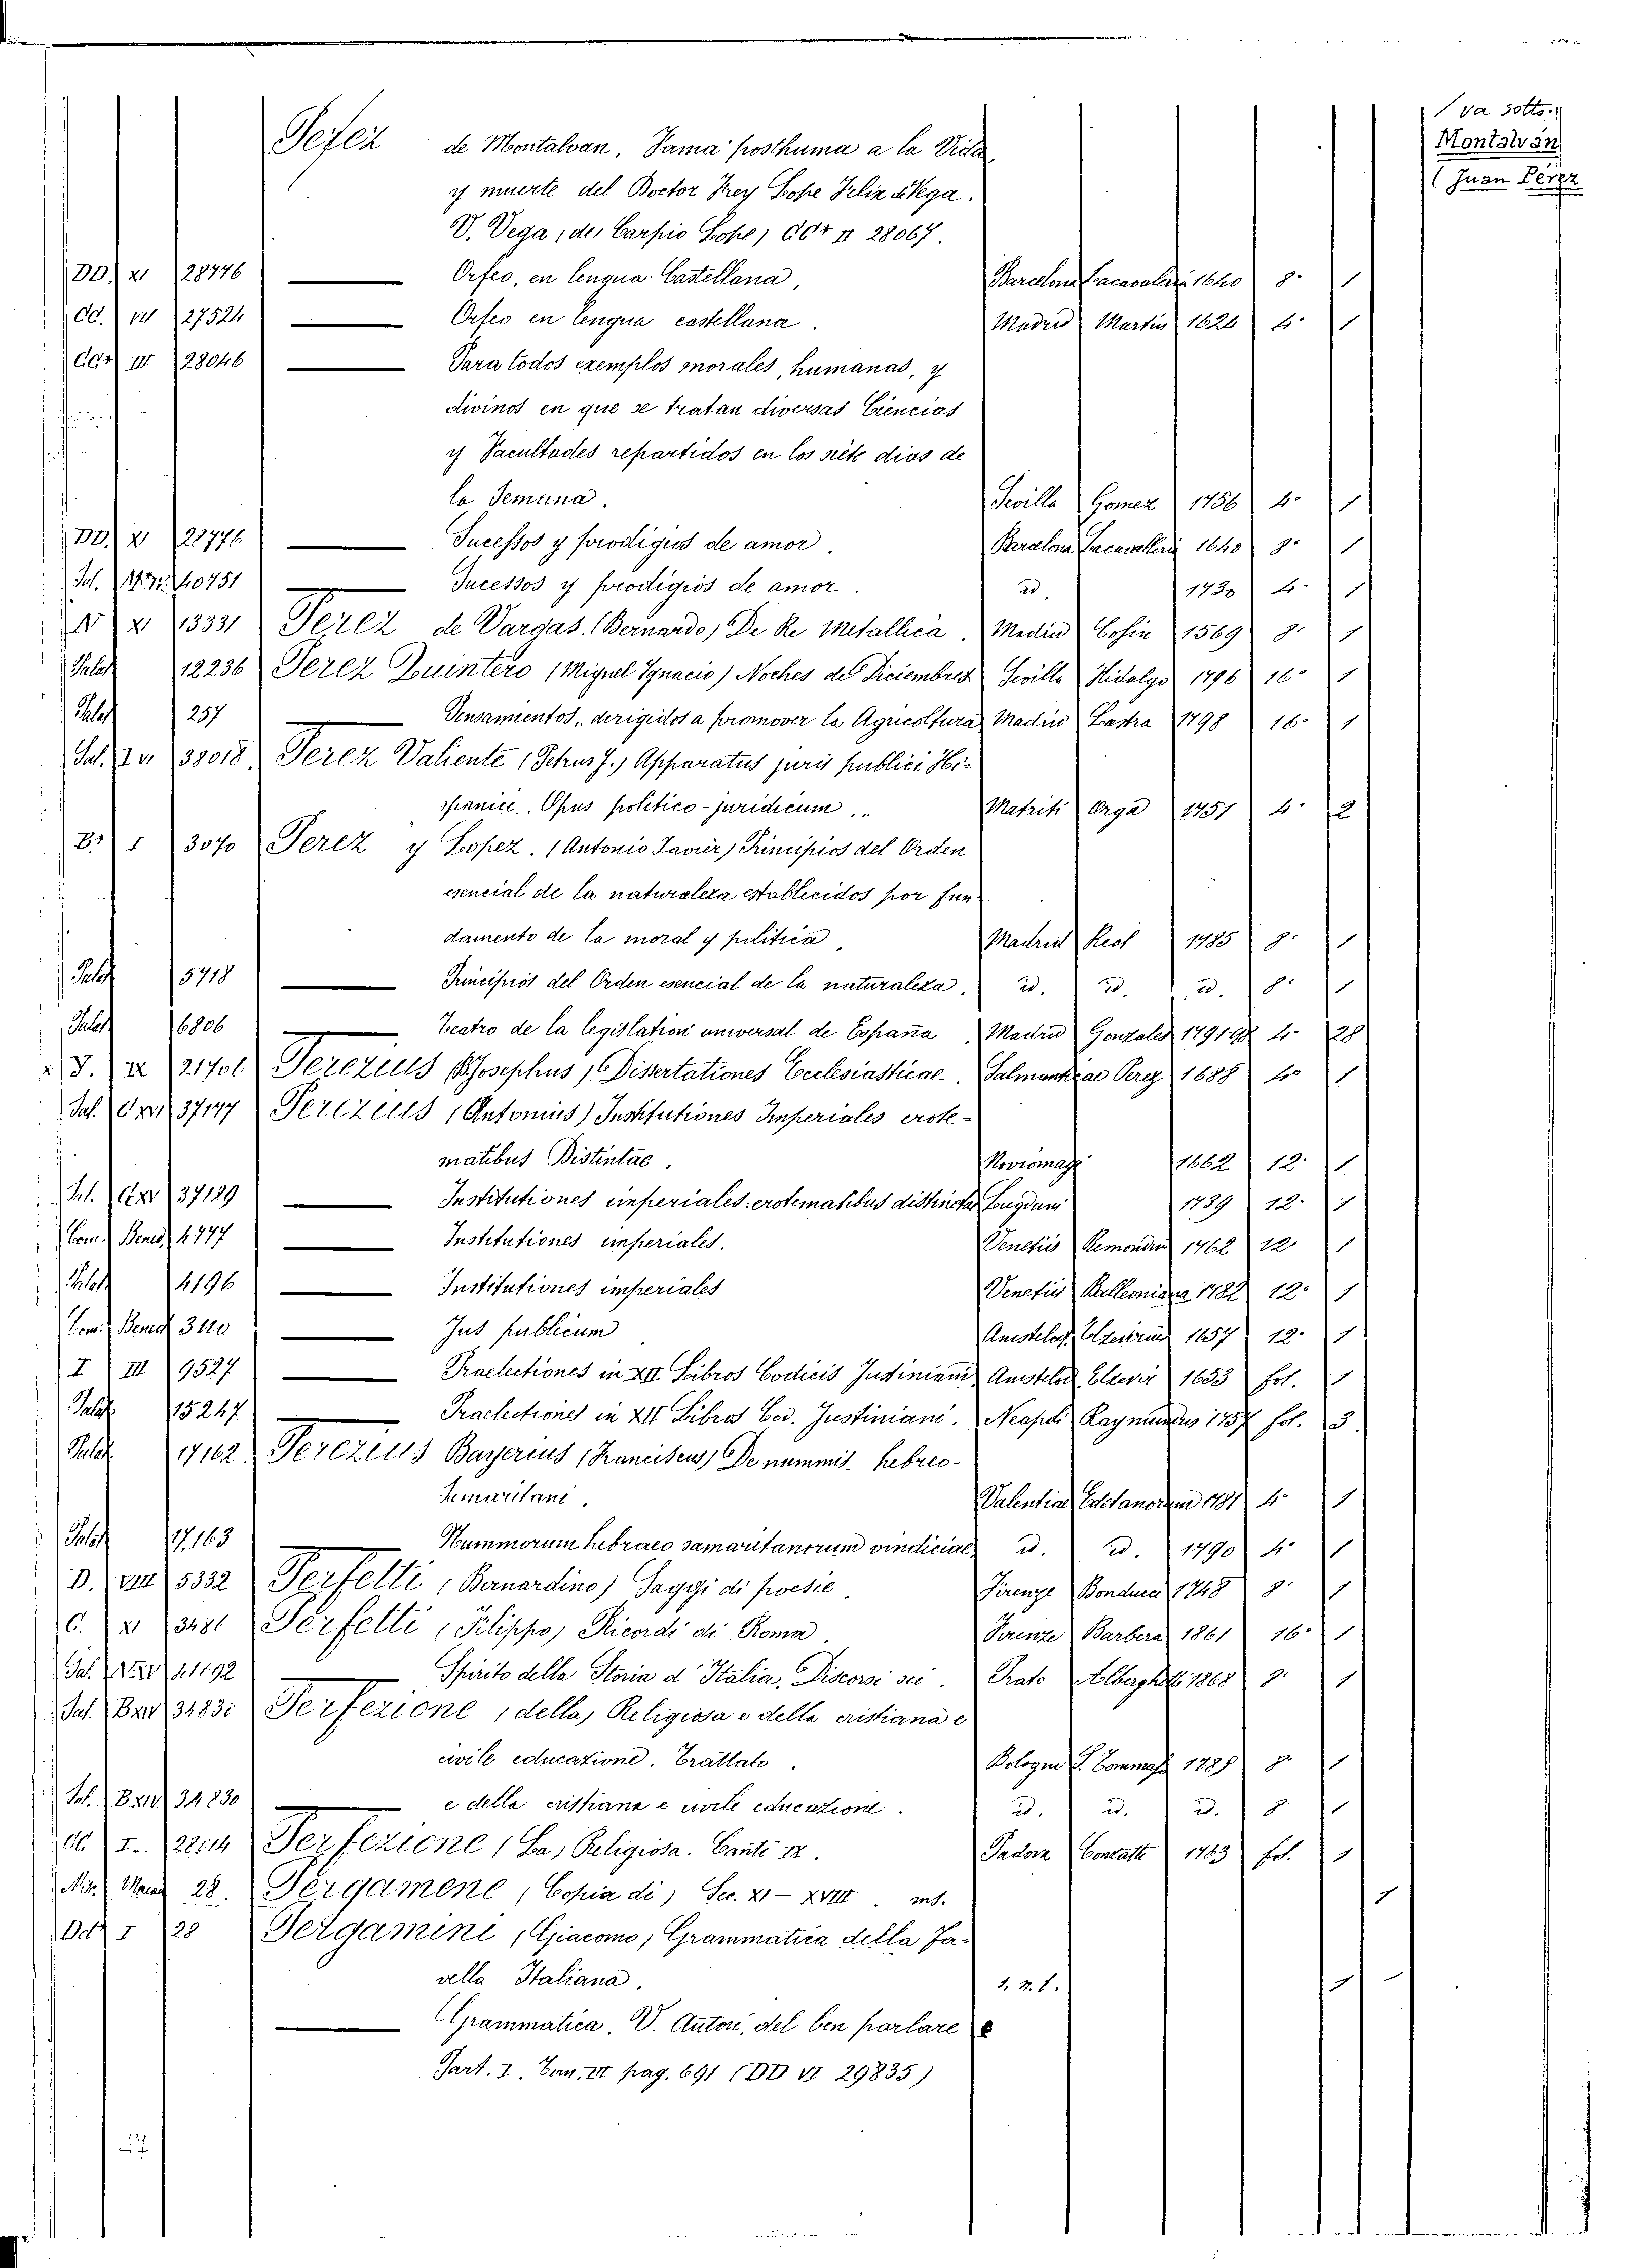 va sotto:
Montalván
(Juan Pérez
Perez de Montalvan. Fama posthuma a la Vida
y muerte del Doctor Frey Lope Felix de Vega.
V. Vega, de, Carpio Lope)
28067.
DD. XI 28776 — Orfeo, en lengua Castellana, Barcelona Lacavaleria 1640 8° 1
CC. VI 27524 — Orfeo en lengua castellana. Madrid Martin 1624 4° 1
III 28046 — Para todos exemplos morales, humanas, y
divinos en que se tratan diversas Ciencias
y Facultades repartidos en los siete dias de
la Semana. Sevilla Gomez 1756 4° 1
DD. XI 28776 — Sucessos y prodigios de amor. Barcelona Lacavalleria 1640 8° 1
40751 — Sucessos y prodigios de amor. id. 1730 4° 1
N XI 13331 Perez de Vargas. (Bernardo) De Re Metallica. Madrid Cosin 1569 8° 1
Palat 12236 Perez Quintero (Miguel Ygnacio) Noches de Diciembres Sevilla Hidalgo 1796 16° 1
Palat 257 — Pensamientos, dirigidos a promover la Agricoltura Madrid Lastra 1798 16° 1
38018 Perez Valiente (Petrus J.) Apparatus juris publici Hi-
spanice. Opus politico-juridicum. Matriti Orga 1751 4° 2
I 3070 Perez y Lopez. (Antonio Xavier) Principios del Orden
esencial de la naturaleza establecidos por fun-
damento de la moral y politica, Madrid Real 1785 8° 1
Palat 5718 — Principios del Orden esencial de la naturaleza. id. id. id. 8° 1
Palat 6806 — Teatro de la legislation universal de España. Madrid Gonzales 1791 98 4° 28
21701 Perezius (Josephus) Dissertationes Ecclesiasticae. Salmanticae Perez 1688 4° 1
37147 Perezius (Antonius) Institutiones Imperiales erote-
matibus Distintae. Noviomagi 1662 12° 1
37189 — Institutiones imperiales erotematibus distinctae Lugduni 1739 12° 1
Com. Bened. 4777 — Institutiones imperiales. Venetiis Remondin 1762 12° 1
Palat 4196 — Institutiones imperiales Venetiis Balleoniana 1782 12° 1
Com. Bened. 3120 — Jus publicum Amstelod. Elzevirius 1657 12° 1
I III 9527 — Praelectiones in XII Libros Codicis Justiniani Amstelod. Elzevir 1653 fol. 1
Palat 15247 — Praelectiones in XII Libros Cod. Justiniani. Neapoli Raymundus 1757 fol. 3
Palat 17162 Perezius Bayerius (Franciscus) De nummis hebreo-
Samaritani. Valentiae Edetanorum 1781 4° 1
Palat 17,163 — Nummorum hebraeo samaritanorum vindiciae, id. id. 1790 4° 1
D. VIII 5332 Perfetti (Bernardino) Saggi di poesie. Firenze Bonducci 1748 8° 1
C. XI 3481 Perfetti (Filippo) Ricordi di Roma. Firenze Barbera 1861 16° 1
41192 — Spirito della Storia d'Italia, Discorsi sei. Prato Alberghetti 1868 8° 1
34830 Perfezione (della) Religiosa e della cristiana e
civile educazione. Trattato. Bologna S. Tommaso 1789 8° 1
34830 — e della cristiana e civile educazione. id. id. id. 8° 1
Perfezione (La) Religiosa. Canti IX. Padova Conzatti 1763 fol. 1
28. Pergamene (Copia di) Sec. XI-XVIII. ms. 1
I 28 Pergamini (Giacomo) Grammatica della Fa-
vella Italiana. s. n. t. 1
— Grammatica. V. Autori, del ben parlare e
Part. I. Tom. III pag. 691 (DD VI 29835)